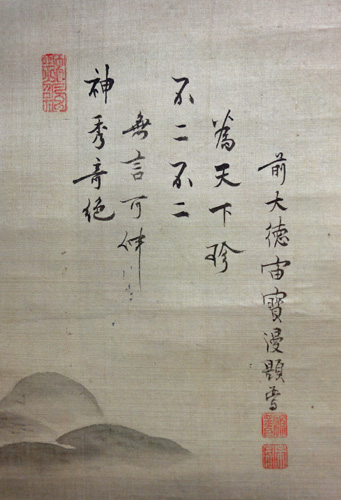 神秀奇絶
無言可伸
不二不二
為天下珍
前大徳宙寳漫題